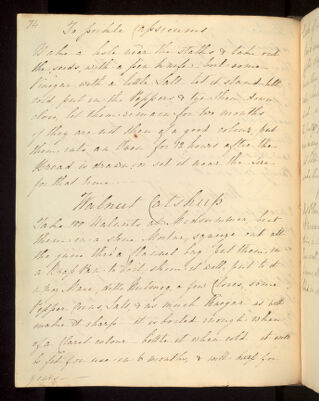 74
To pickle Capsicums
Make a hole near the Stalks, & take out
the seeds, with a pen knife: boil some
Vinegar with a little Salt. let it stand till
cold, put in the Peppers & tye them down
close let them remain for two months
if they are not then of a good colour, put
them into an Oven for 12 hours after the
Bread is drawn, or set it near the fire
for that time
Walnut Catshup
Take 100 Walnuts at Midsummer, beat
them in a stone Mortar, squeeze out all
the juice thro' a flannel bag, put them in
a to boil, skim it well, put to it
Mace, a few Cloves, some
Pepper Corns, Salt, & as much Vinegar as will
make it sharp — it is boiled enough when
of a Claret colour — bottle it when cold it will
be fit for use in 6 months, & will keep for
years